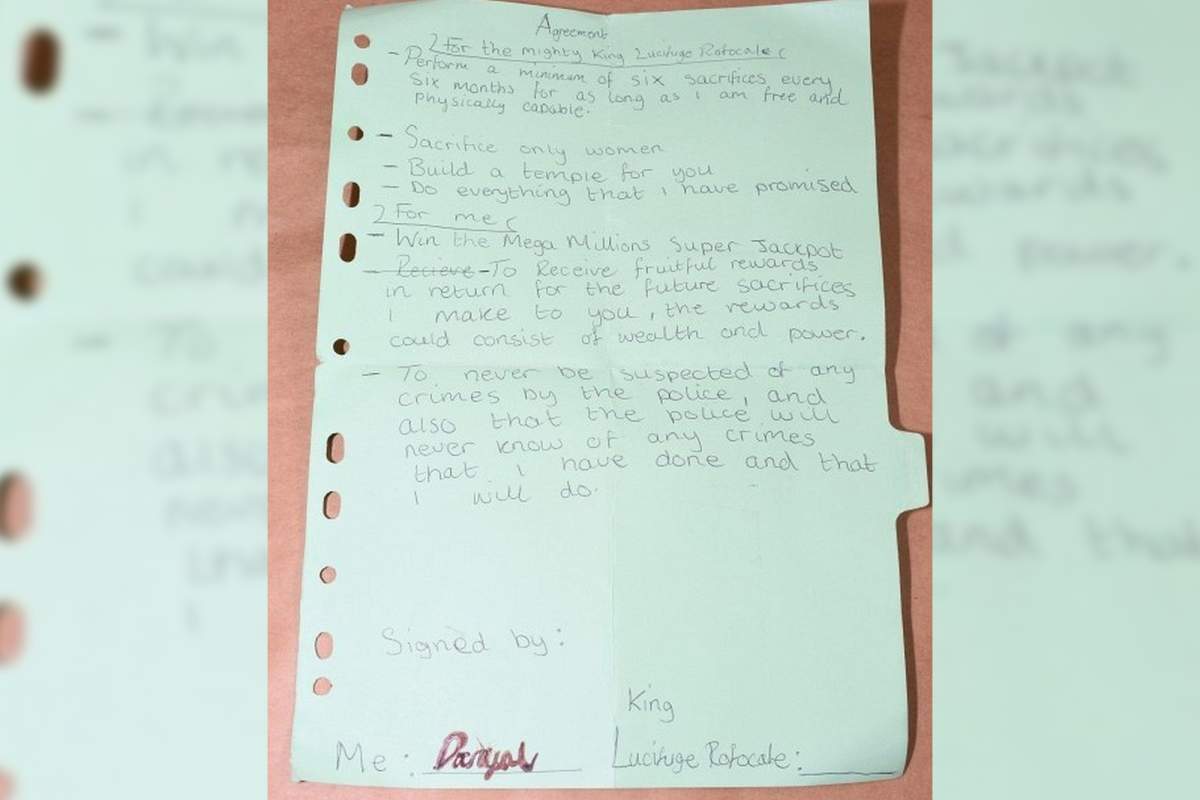 Agreement
For the mighty King Lucifuge Rofocale
- Perform a minimum of six sacrifices every
six months for as long as I am free and
physically capable.
- Sacrifice only women
- Build a temple for you
- Do everything that I have promised
For me
- Win the Mega Millions Super Jackpot
- Recieve - To Receive fruitful rewards
in return for the future sacrifices
I make to you, the rewards
could consist of wealth and power.
- To never be suspected of any
crimes by the police, and
also that the police will
never know of any crimes
that I have done and that
I will do.
Signed by:
King
Me: Lucifuge Rofocale: